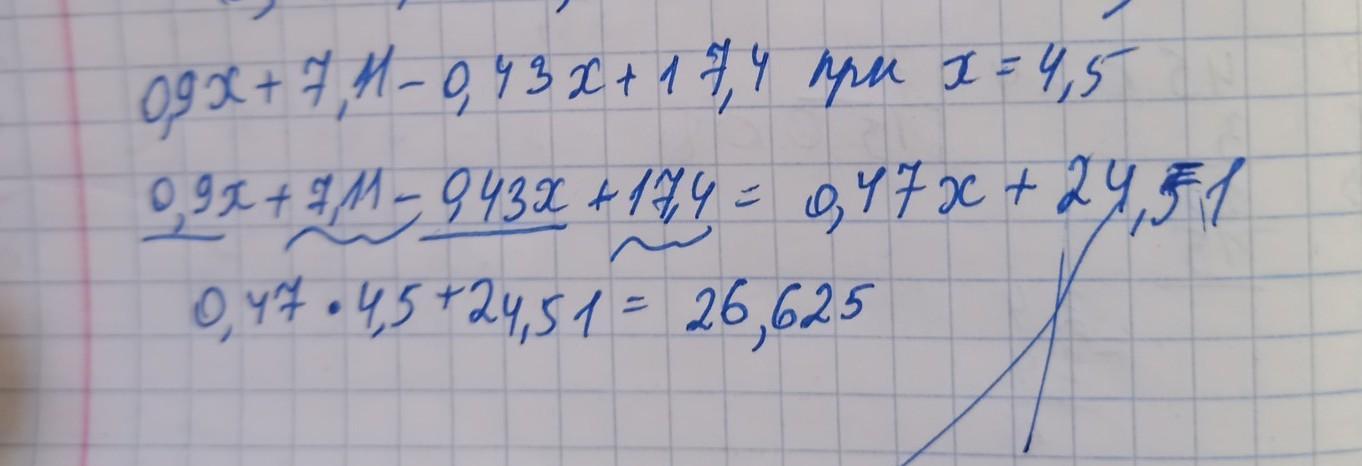 0,9x + 7,11 - 0,43x + 17,4 при x = 4,5
0,9x + 7,11 - 0,43x + 17,4 = 0,47x + 24,51
0,47 · 4,5 + 24,51 = 26,625